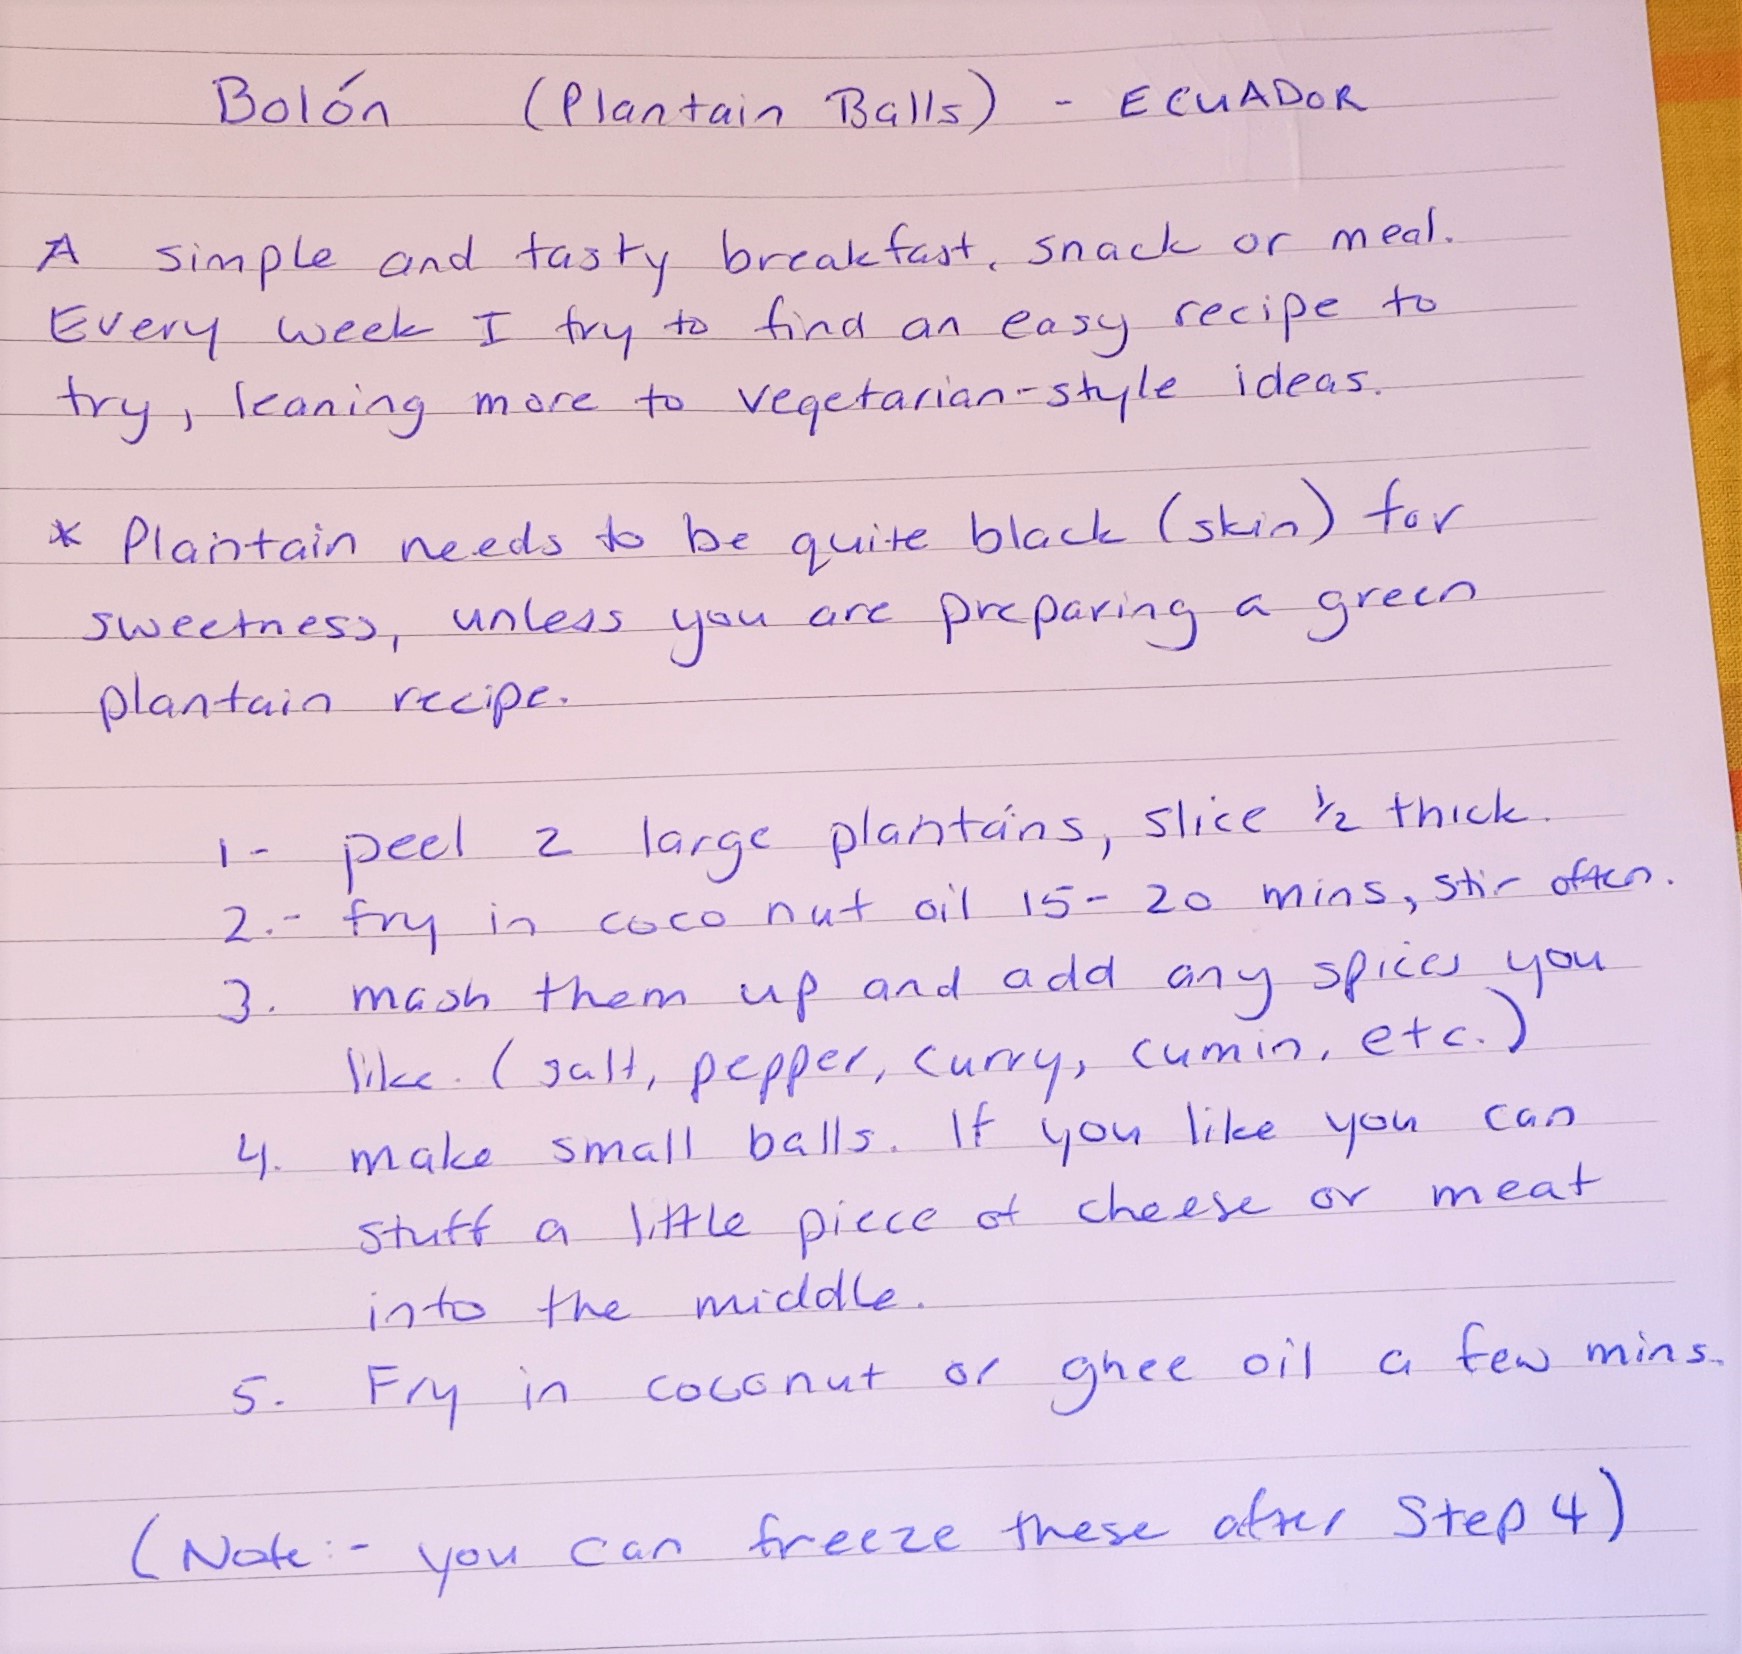 Bolón (Plantain Balls) - ECUADOR
A simple and tasty breakfast, snack or meal.
Every week I try to find an easy recipe to
try, leaning more to vegetarian-style ideas.
* Plantain needs to be quite black (skin) for
sweetness, unless you are preparing a green
plantain recipe.
1- peel 2 large plantains, slice ½ thick.
2.- fry in coco nut oil 15-20 mins, stir often.
3. mash them up and add any spices you
like. (salt, pepper, curry, cumin, etc.)
4. make small balls. If you like you can
stuff a little piece of cheese or meat
into the middle.
5. Fry in coconut or ghee oil a few mins.
(Note:- you can freeze these after Step 4)